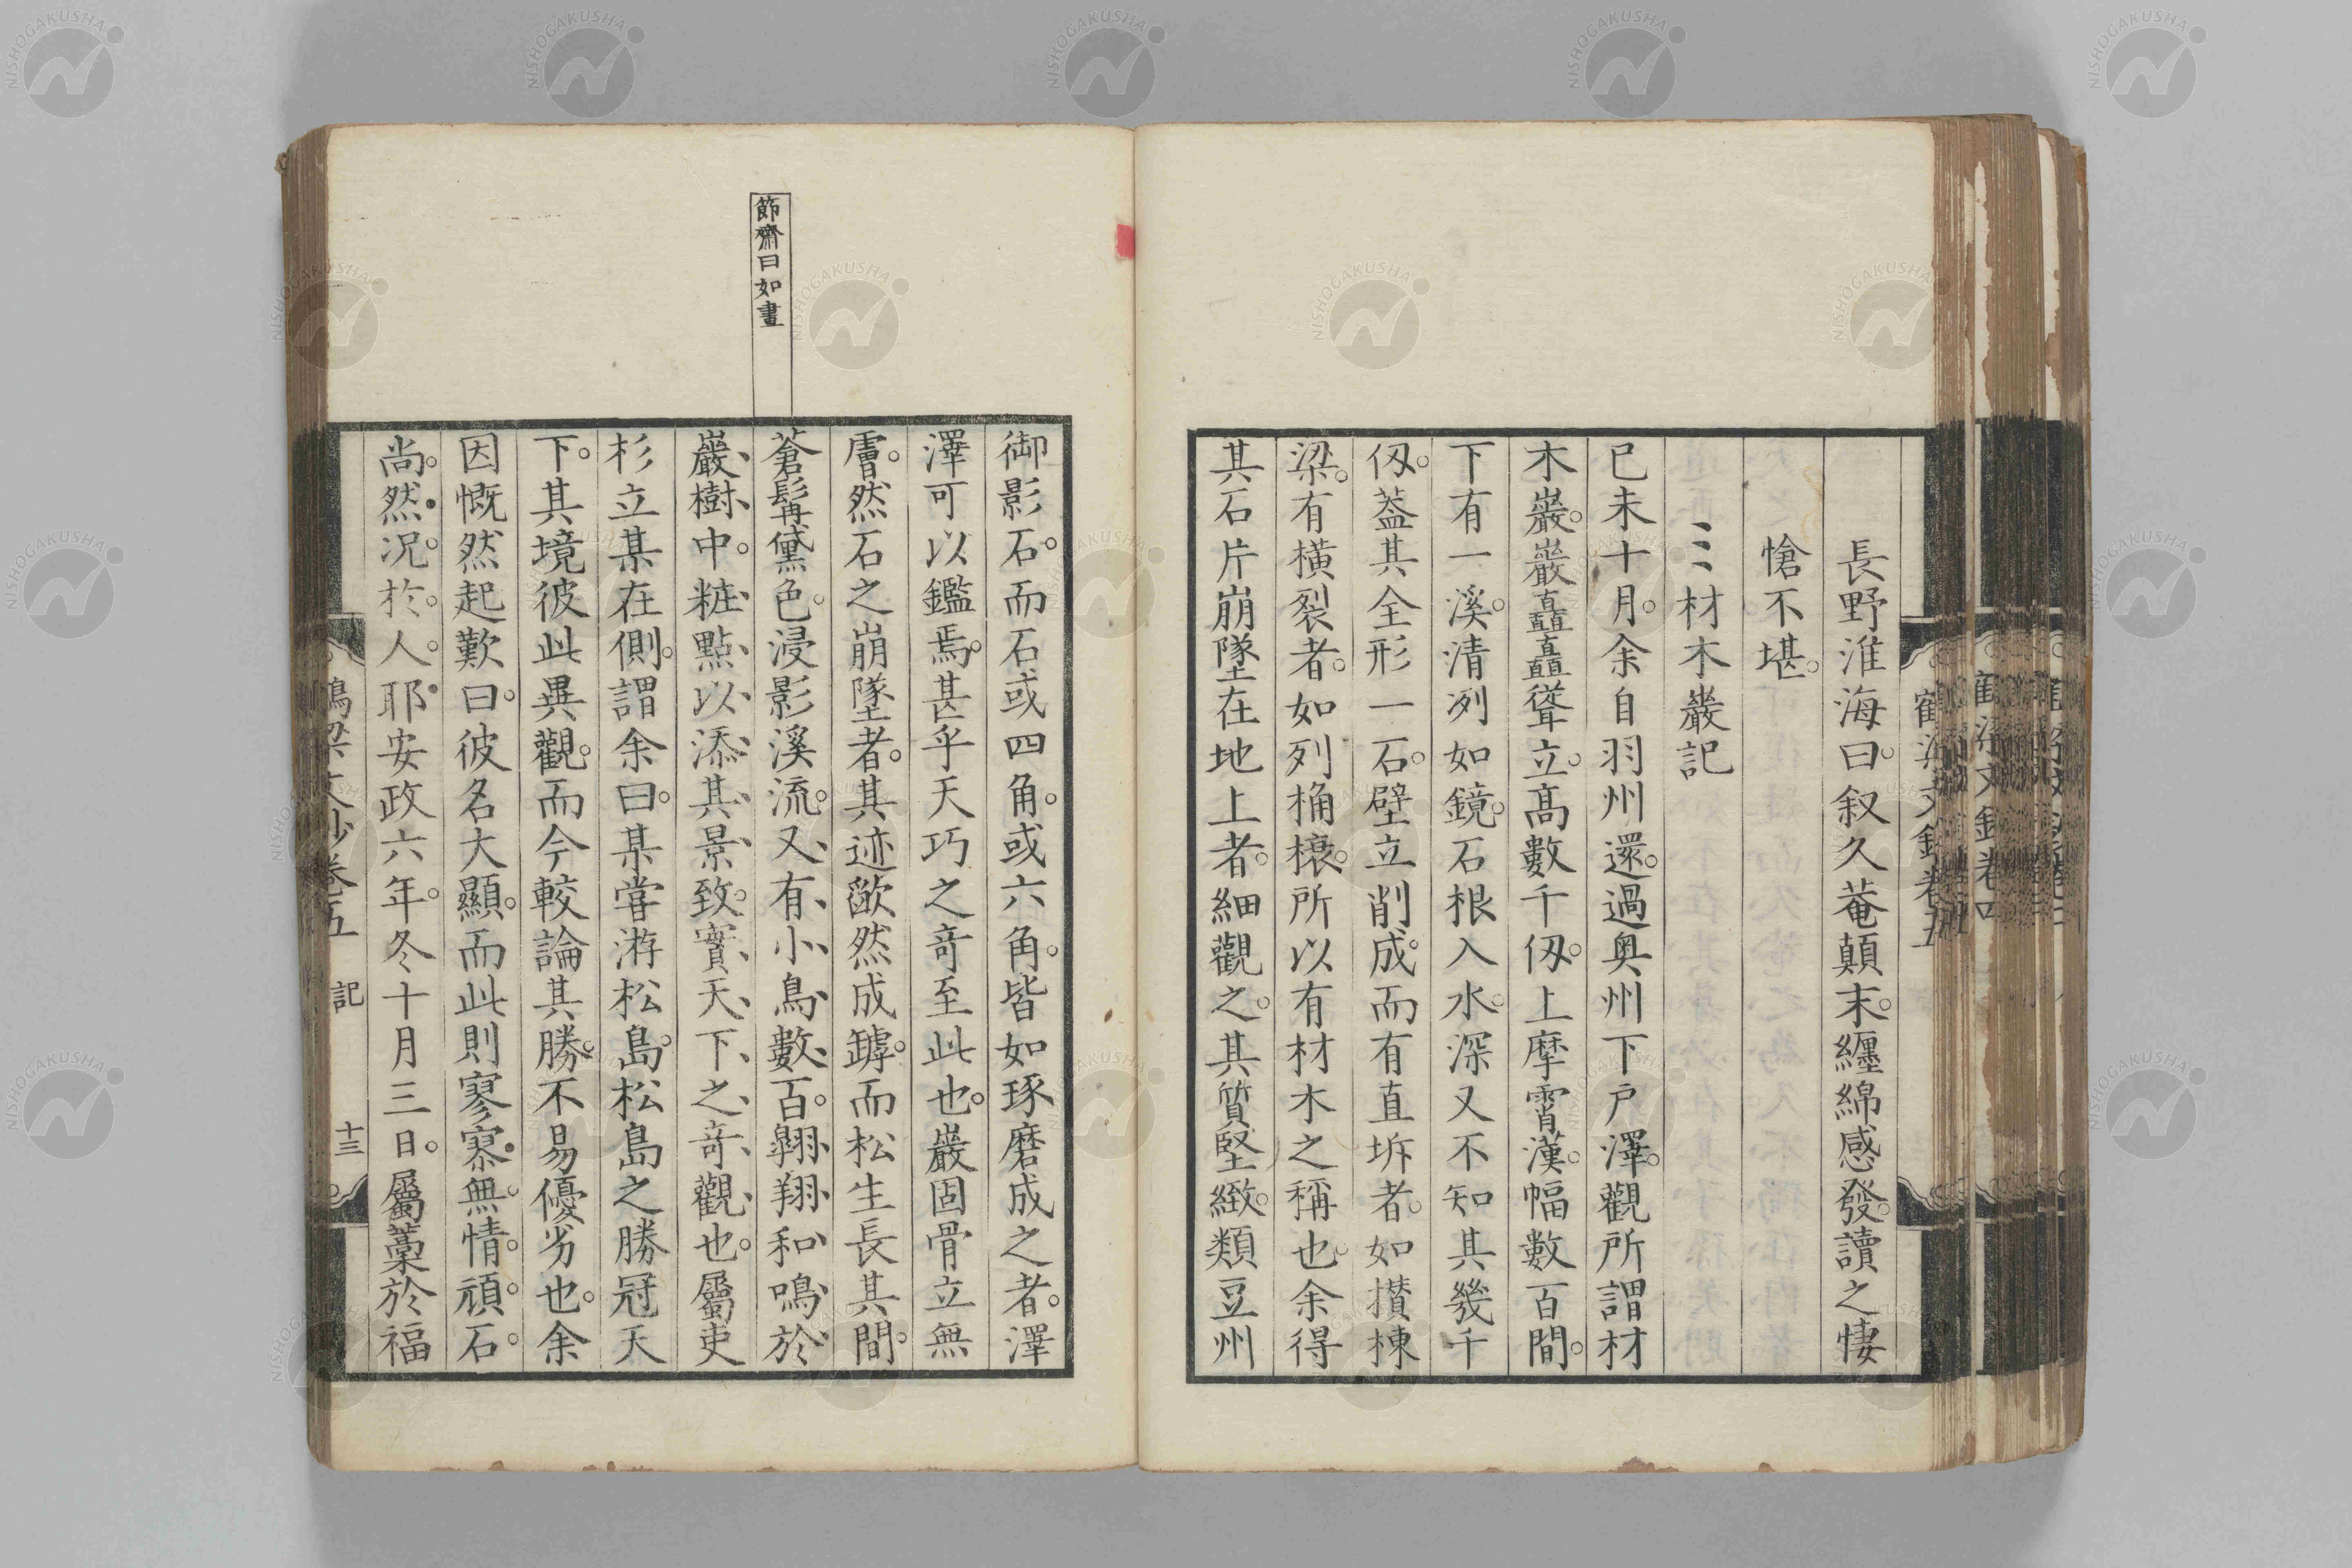 長野淮海曰叙久菴顛末纏綿感發讀之悽
愴不堪
材木巖記
已未十月余自羽州還過奥州下戸澤觀所謂材
木巖巖矗矗聳立髙數千仭上摩霄漢幅數百間
下有一溪清冽如鏡石根入水深又不知其幾千
仭蓋其全形一石壁立削成而有直坼者如攅棟
梁有橫裂者如列桷榱所以有材木之稱也余得
其石片崩墜在地上者細觀之其質堅緻類豆州
節齋曰如畫
御影石而石或四角或六角皆如琢磨成之者澤
澤可以鑑焉甚乎天巧之竒至此也巖固骨立無
膚然石之崩墜者其迹歐然成罅而松生長其間
蒼髯黛色浸影溪流又有小鳥數百翺翔和鳴於
巖樹中粧點以添其景致實天下之竒觀也屬吏
杉立某在側謂余曰某甞游松島松島之勝冠天
下其境彼此異觀而今較論其勝不易優劣也余
因慨然起歎曰彼名大顯而此則寥寥無情頑石
尚然况於人耶安政六年冬十月三日屬藁於福
記
十三
NISHOGAKUSHA